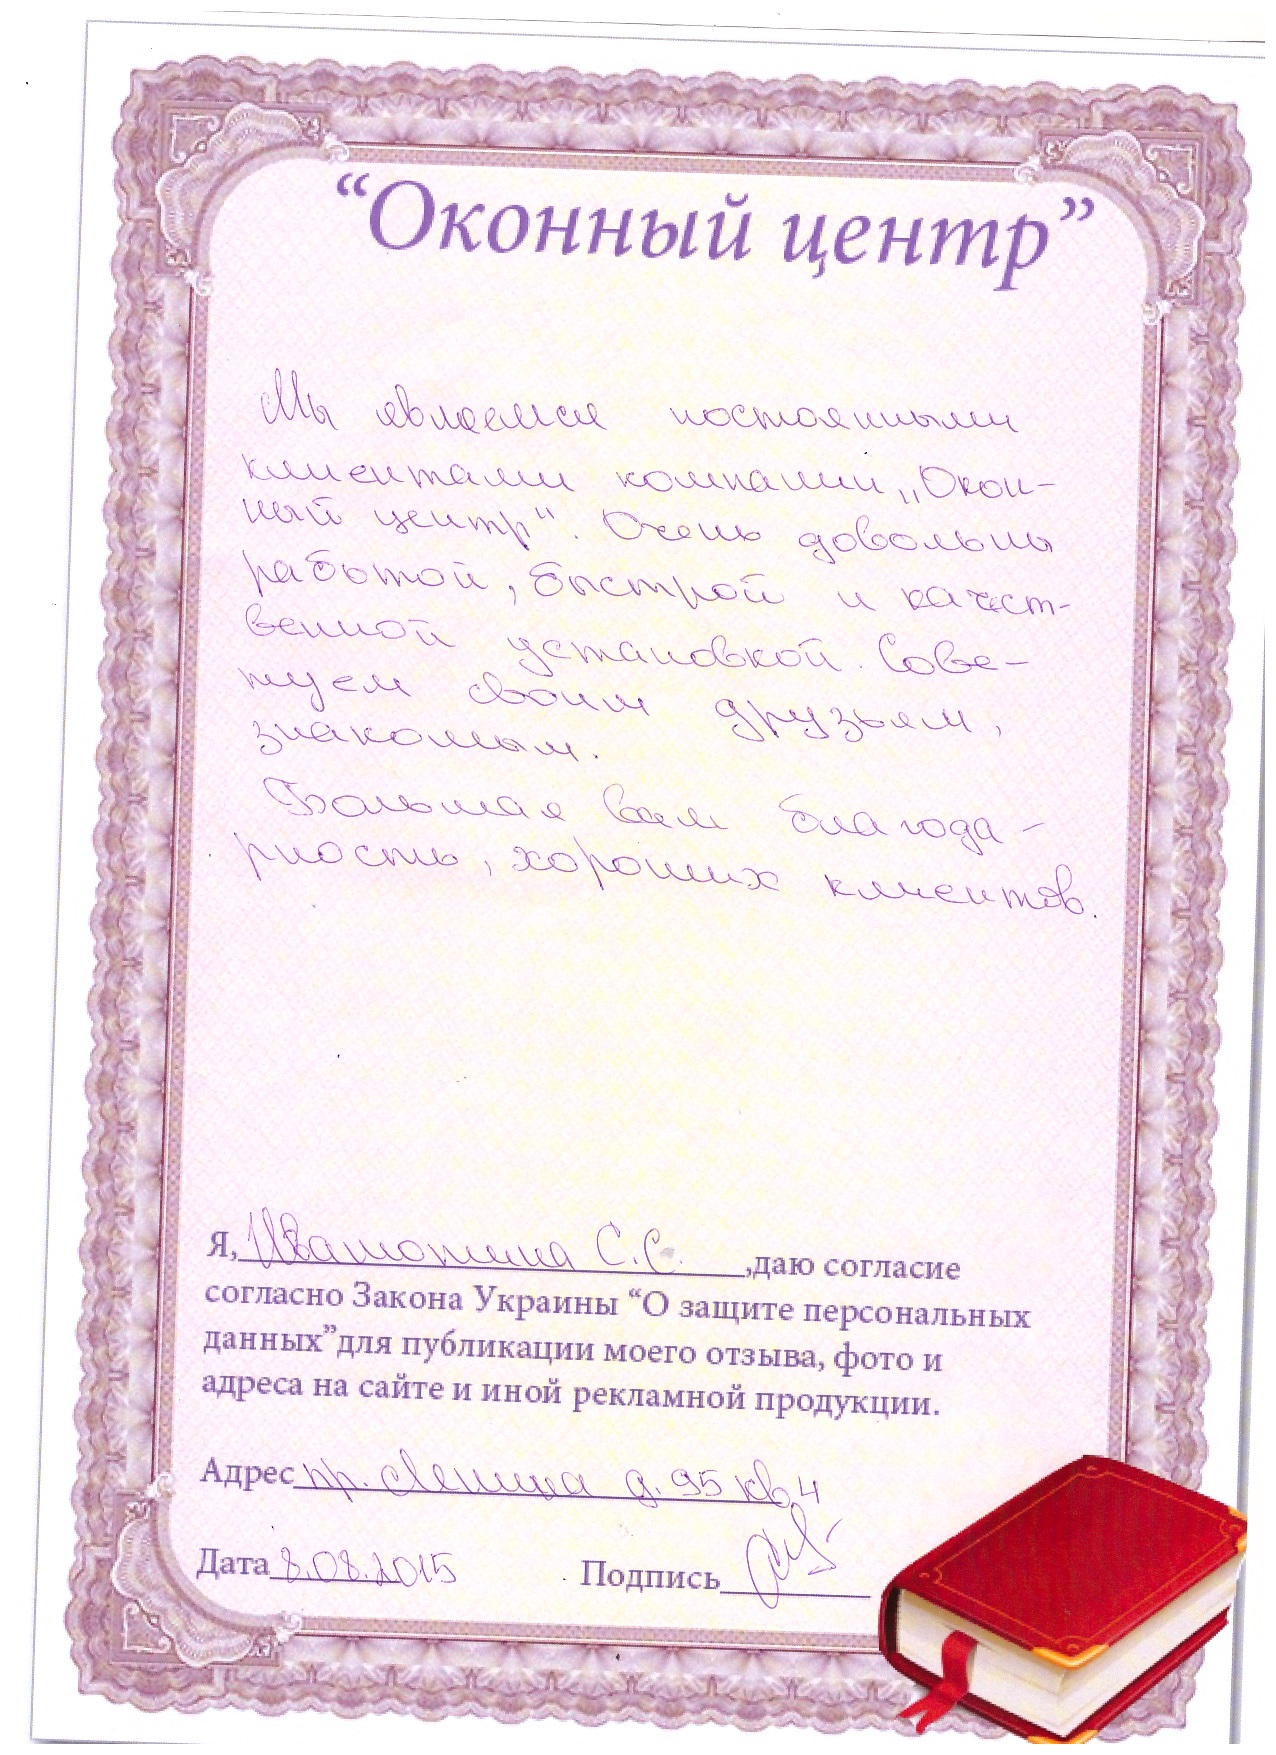 “Оконный центр”
Мы являемся постоянными
клиентами компании „Окон-
ный центр“. Очень довольны
работой, быстрой и качест-
венной установкой. Сове-
туем своим друзьям,
знакомым.
Большая вам благода-
рность, хороших клиентов.
Я, С.С. ,даю согласие
согласно Закона Украины “О защите персональных
данных”для публикации моего отзыва, фото и
адреса на сайте и иной рекламной продукции.
Адрес пр. Ленина д. 95 кв 4
Дата 8.08.2015 Подпись